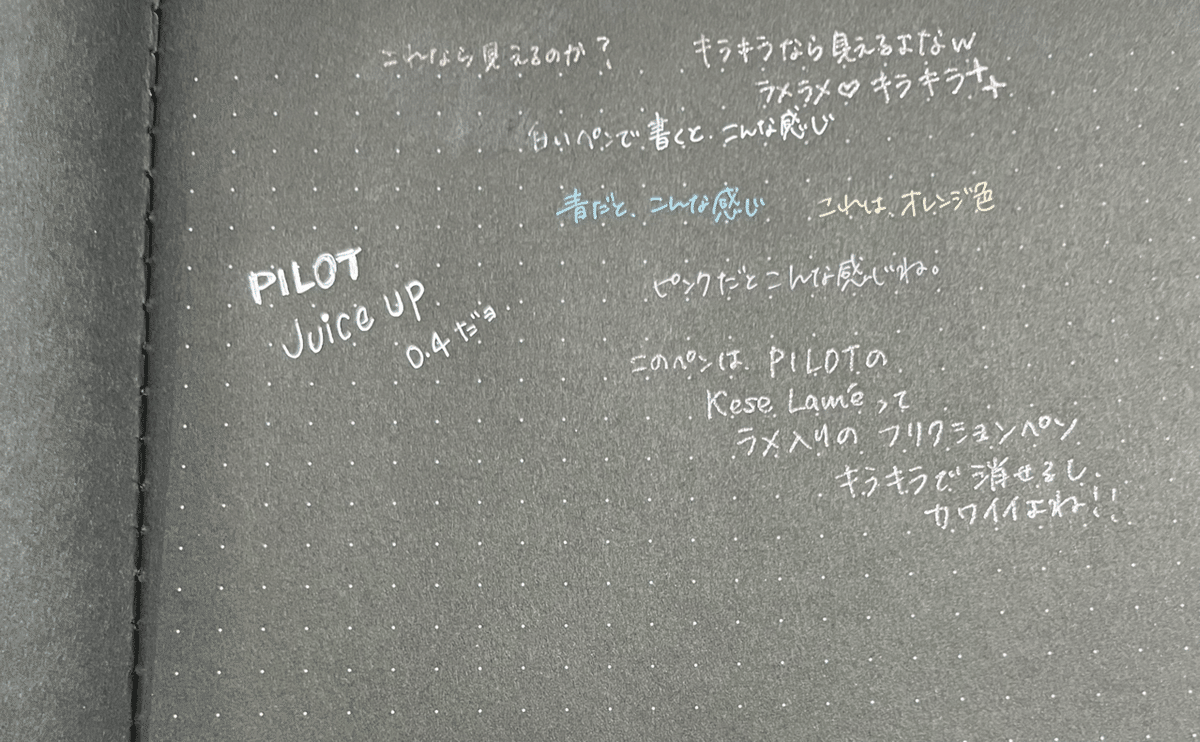 これなら見えるのか?
キラキラなら見えるよなw
ラメラメ♡キラキラ++
白いペンで書くと、こんな感じ
青だと、こんな感じ
これは、オレンジ色
ピンクだとこんな感じね。
PILOT
Juice UP
0.4だョ.
このペンは、PILOTの
Kese Lamé って
ラメ入りの フリクションペン
キラキラで 消せるし、
カワイイよね!!